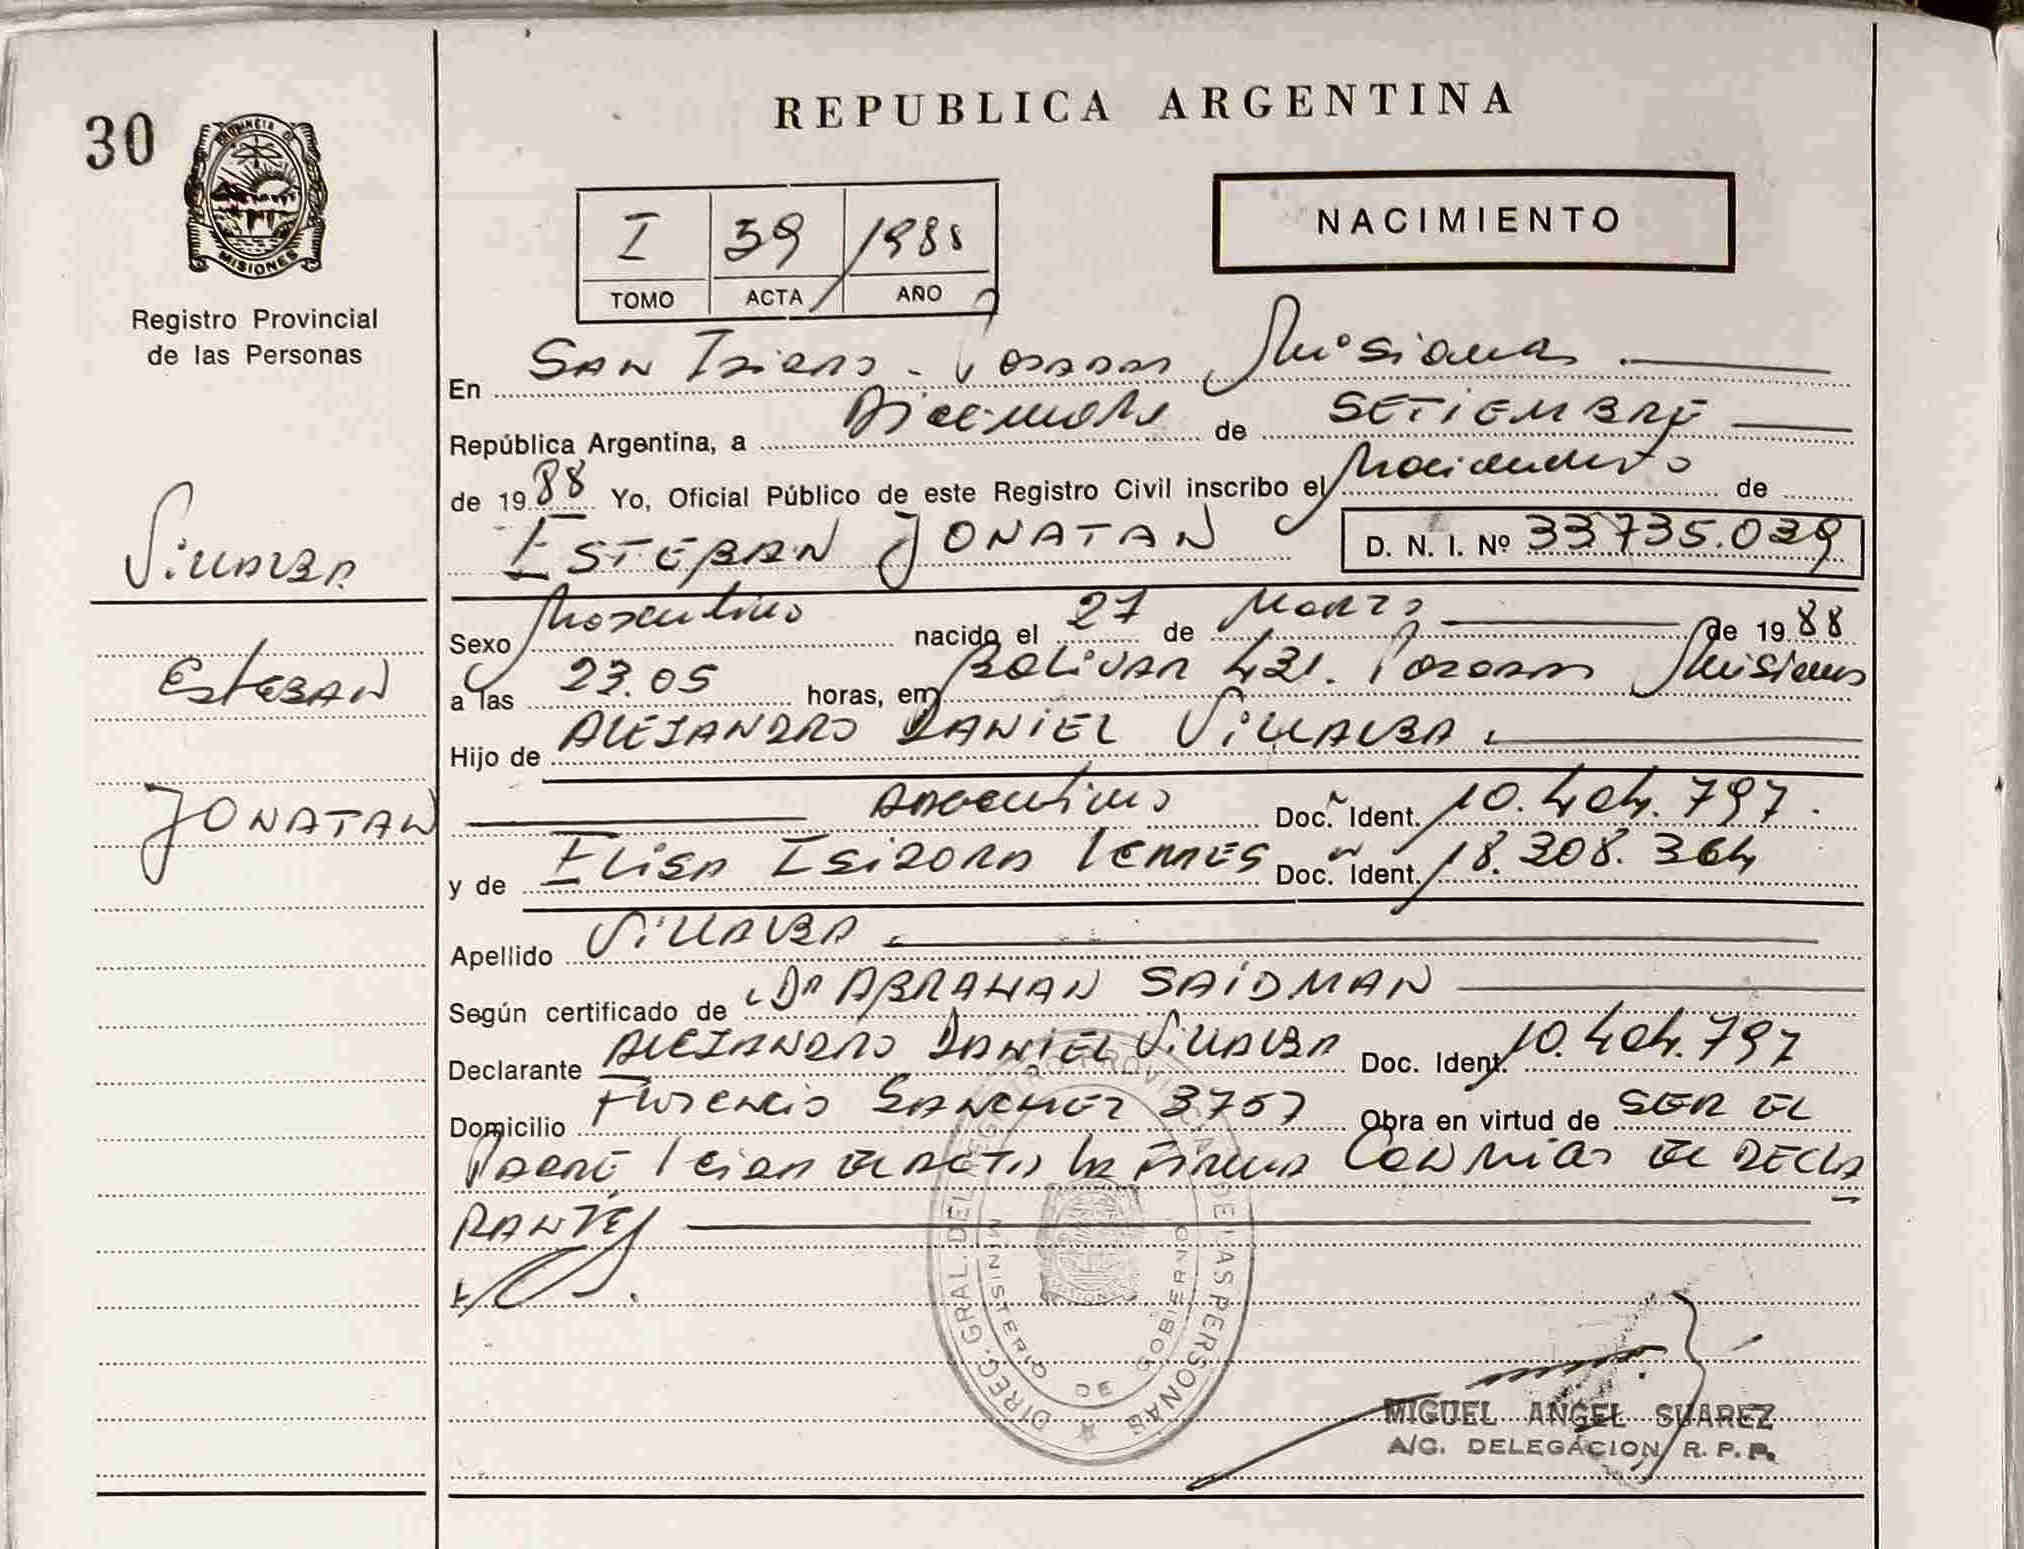 REPUBLICA ARGENTINA
30
PROVINCIA DE
MISIONES
Registro Provincial
de las Personas
NACIMIENTO
I 39 1988
TOMO ACTA AÑO
En San Isidro - Posadas Misiones
República Argentina, a de SETIEMBRE
de 1988 Yo, Oficial Público de este Registro Civil inscribo el Nacimiento de
ESTEBAN JONATAN D. N. I. Nº 33735.039
Villalba
Esteban
JONATAN
Sexo Masculino nacido el 27 de Marzo de 1988
a las 23.05 horas, en BOLIVAR 421. Posadas Misiones
Hijo de ALEJANDRO DANIEL VILLALBA.
Argentino Doc. Ident. 10.404.797.
y de ELISA ISIDORA Doc. Ident. 18.308.364
Apellido VILLALBA
Según certificado de Dr ABRAHAN SAIDMAN
Declarante ALEJANDRO DANIEL VILLALBA Doc. Ident. 10.404.797
Domicilio Florencio SANCHEZ 3757 Obra en virtud de SER EL
Padre Leida el acta la firma Conmigo el DECLA
RANTE
DIREC. GRAL. DEL REGISTRO PROVINCIAL DE LAS PERSONAS
MINISTERIO DE GOBIERNO
MIGUEL ANGEL SUAREZ
A/C. DELEGACION R. P. P.